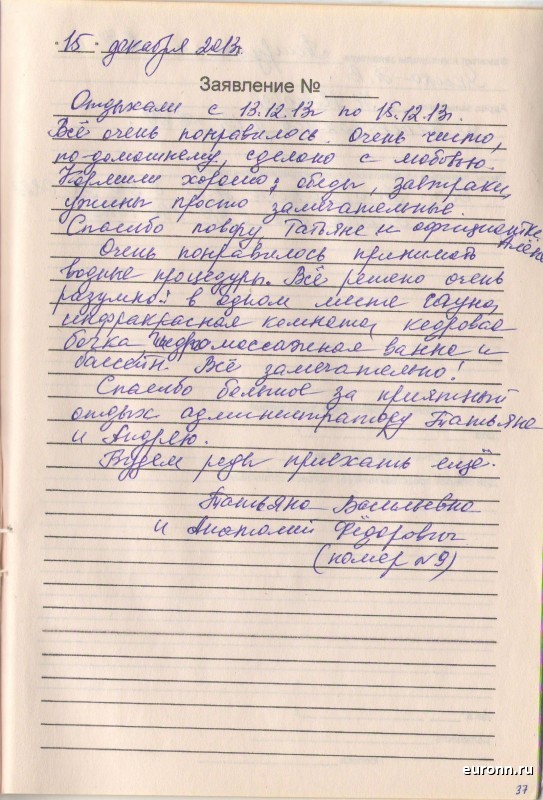 15 декабря 2013г.
Заявление №
Отдыхали с 13.12.13г по 15.12.13г.
Всё очень понравилось. Очень чисто,
по-домашнему, сделано с любовью.
Кормили хорошо; обеды, завтраки,
ужины просто замечательные.
Спасибо повару Татьяне и официантке
Алёне
Очень понравилось принимать
водные процедуры. Всё решено очень
разумно: в одном месте сауна,
инфракрасная комната, кедровая
бочка, гидромассажная ванна и
бассейн. Всё замечательно!
Спасибо большое за приятный
отдых администратору Татьяне
и Андрею.
Будем рады приехать ещё.
Татьяна Васильевна
и Анатолий Фёдорович
(номер №9)
37
euronn.ru